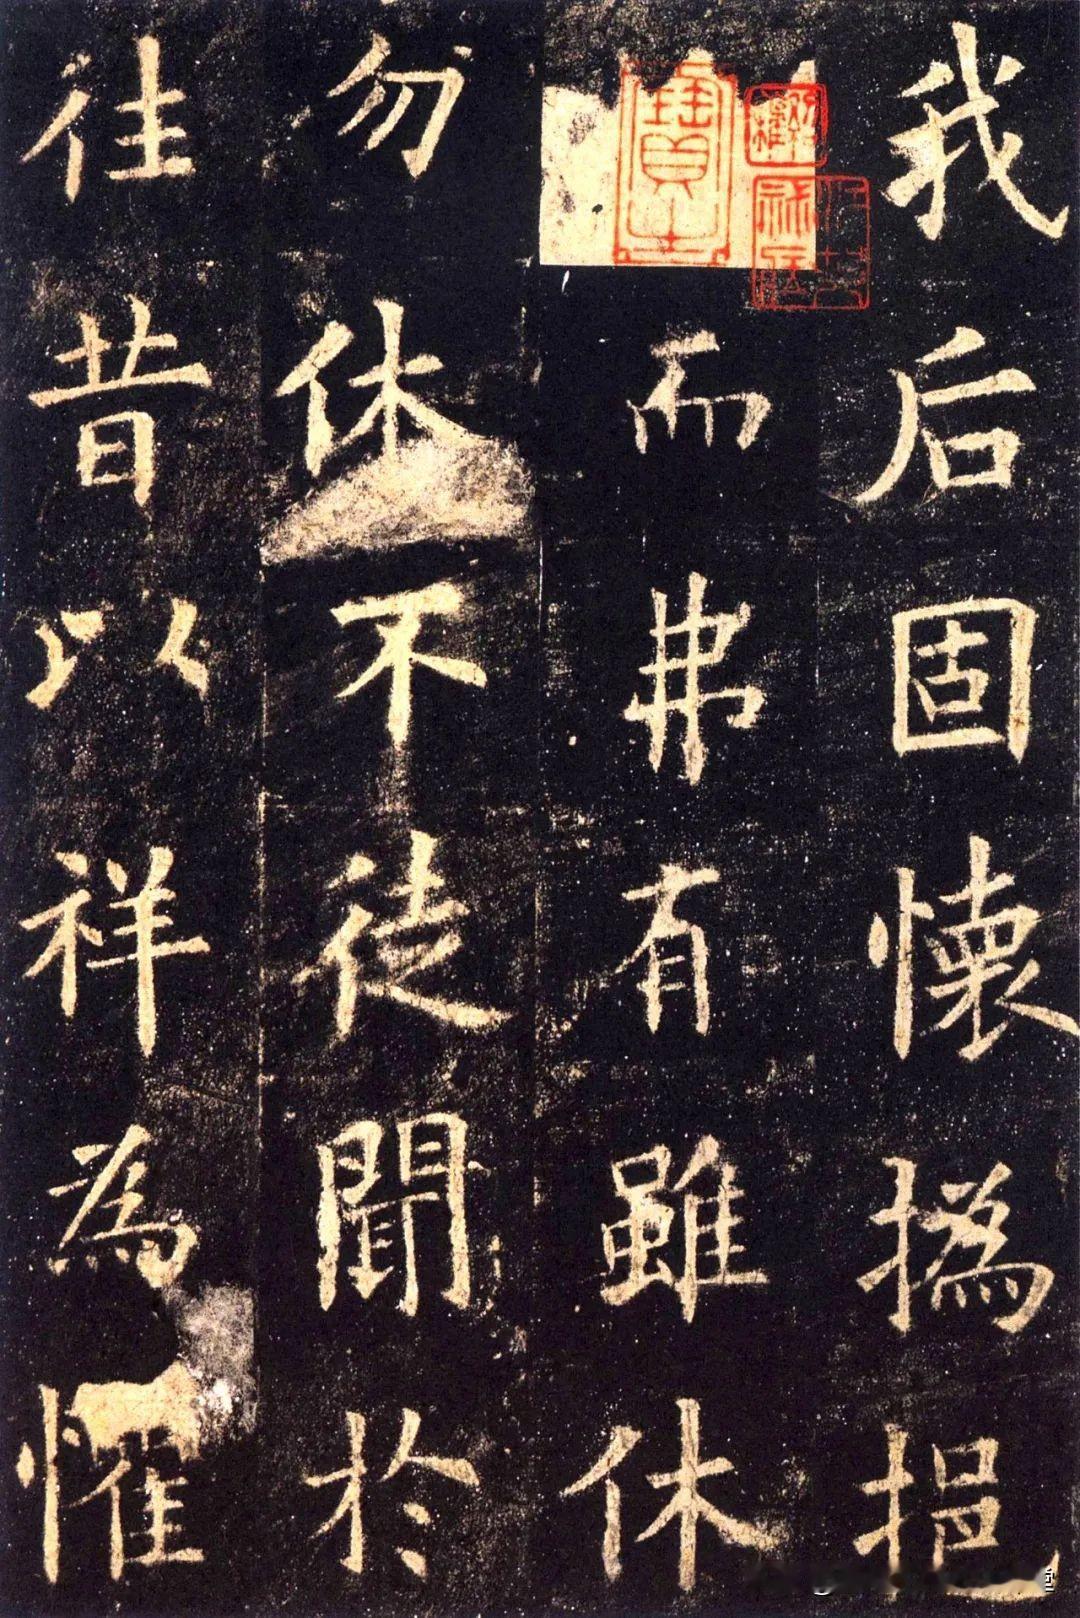 我后固懷撝挹
而弗有雖休
勿休不徒聞於
往昔以祥為懼